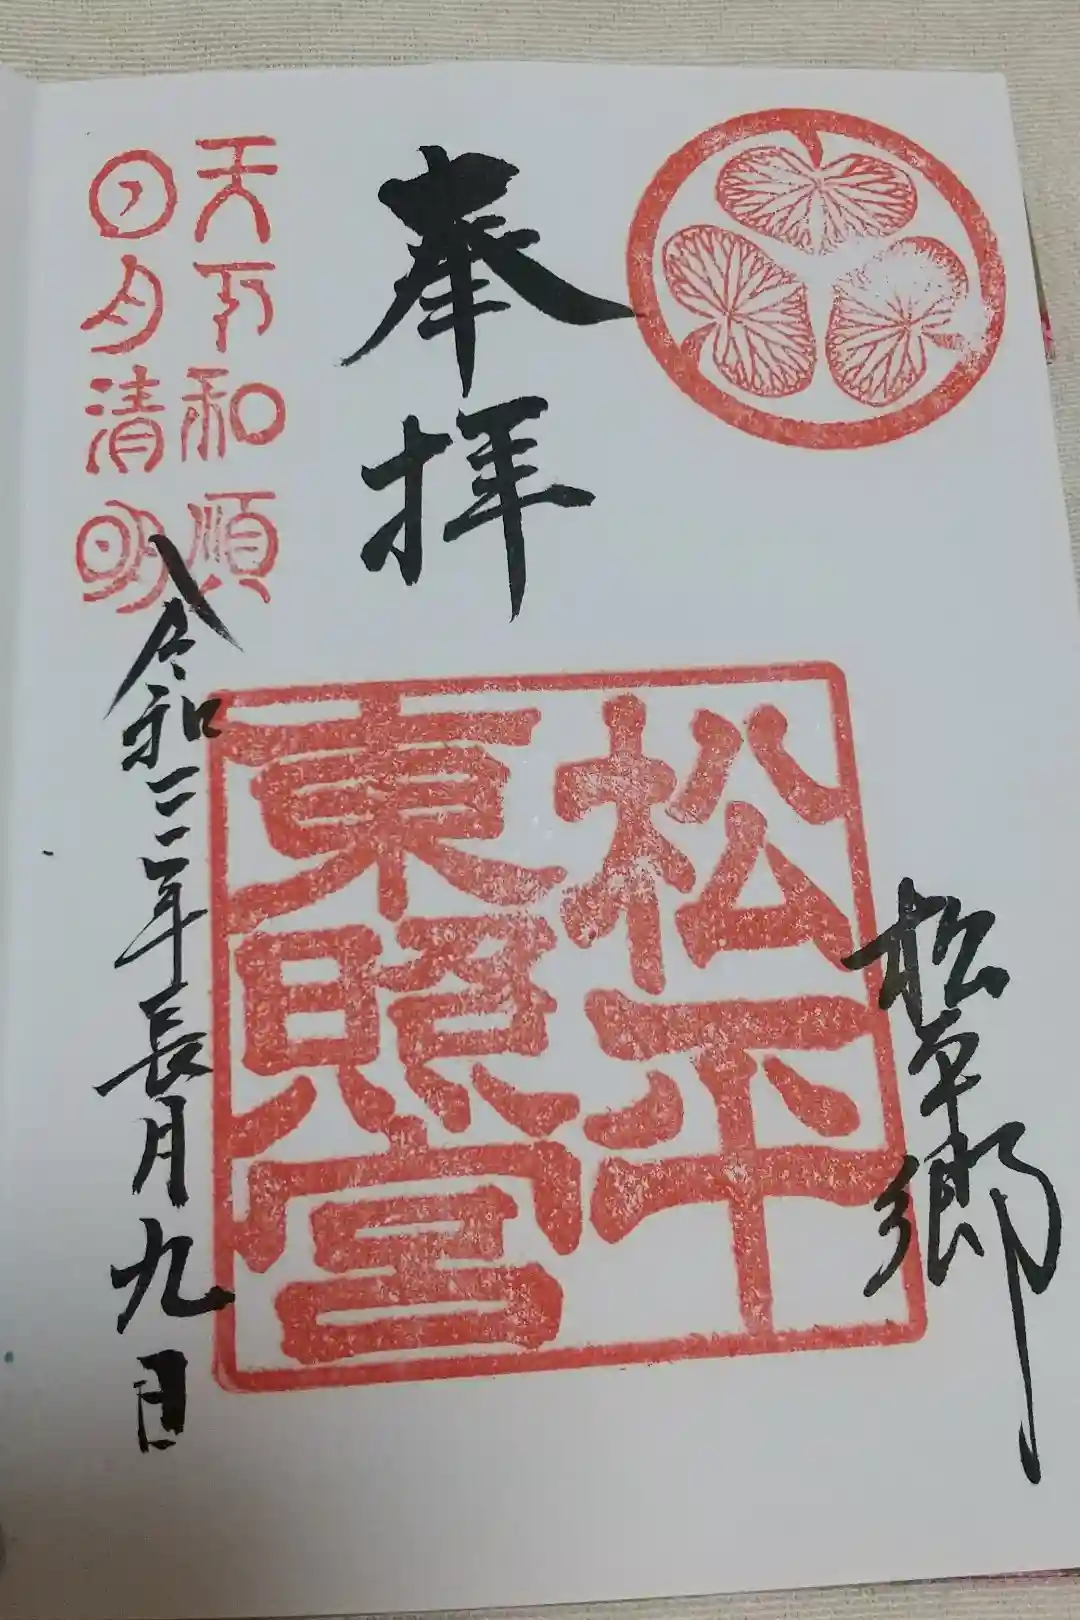 奉拝
松平郷
松平
東照宮
天下和順
日月清明
令和三年長月九日